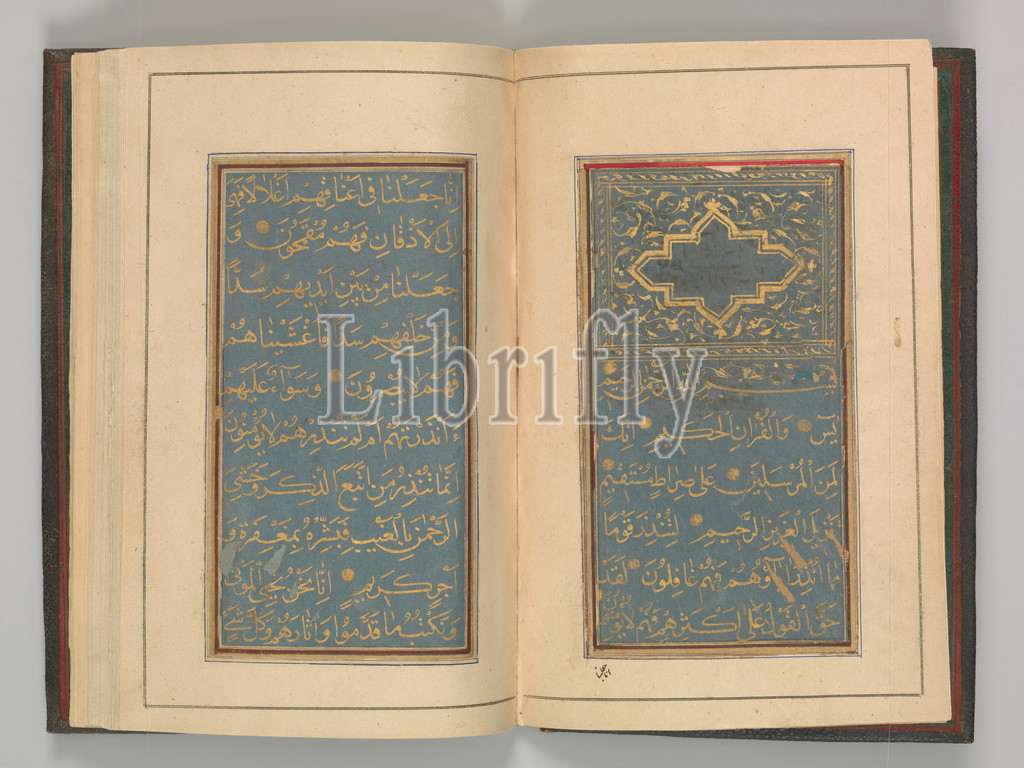 بسم الله الرحمن الرحيم
يس وَالْقُرْاٰنِ الْحَكيمِ اِنَّكَ
لَمِنَ الْمُرْسَلينَ عَلى صِراطٍ مُسْتَقيمٍ
تَنْزيلَ الْعَزيزِ الرَّحيمِ لِتُنْذِرَ قَوْمًا
ما اُنْذِرَ اٰباؤُهُمْ فَهُمْ غافِلُونَ لَقَدْ
حَقَّ الْقَوْلُ عَلى اَكْثَرِهِمْ فَهُمْ لايُؤْمِنُونَ
انا جعلنا
اِنّا جَعَلْنا فى اَعْناقِهِمْ اَغْلالاً فَهِىَ
اِلَى الْاَذْقانِ فَهُمْ مُقْمَحُونَ وَ
جَعَلْنا مِنْ بَيْنِ اَيْديهِمْ سَدًّا
وَمِنْ خَلْفِهِمْ سَدًّا فَاَغْشَيْناهُمْ
فَهُمْ لايُبْصِرُونَ وَسَوآءٌ عَلَيْهِمْ
ءَاَنْذَرْتَهُمْ اَمْ لَمْ تُنْذِرْهُمْ لايُؤْمِنُونَ
اِنَّما تُنْذِرُ مَنِ اتَّبَعَ الذِّكْرَ وَخَشِىَ
الرَّحْمٰنَ بِالْغَيْبِ فَبَشِّرْهُ بِمَغْفِرَةٍ وَ
اَجْرٍ كَريمٍ اِنّا نَحْنُ نُحْيِى الْمَوْتى
وَنَكْتُبُ ما قَدَّمُوا وَاٰثارَهُمْ وَكُلَّ شَىْءٍ
Librifly